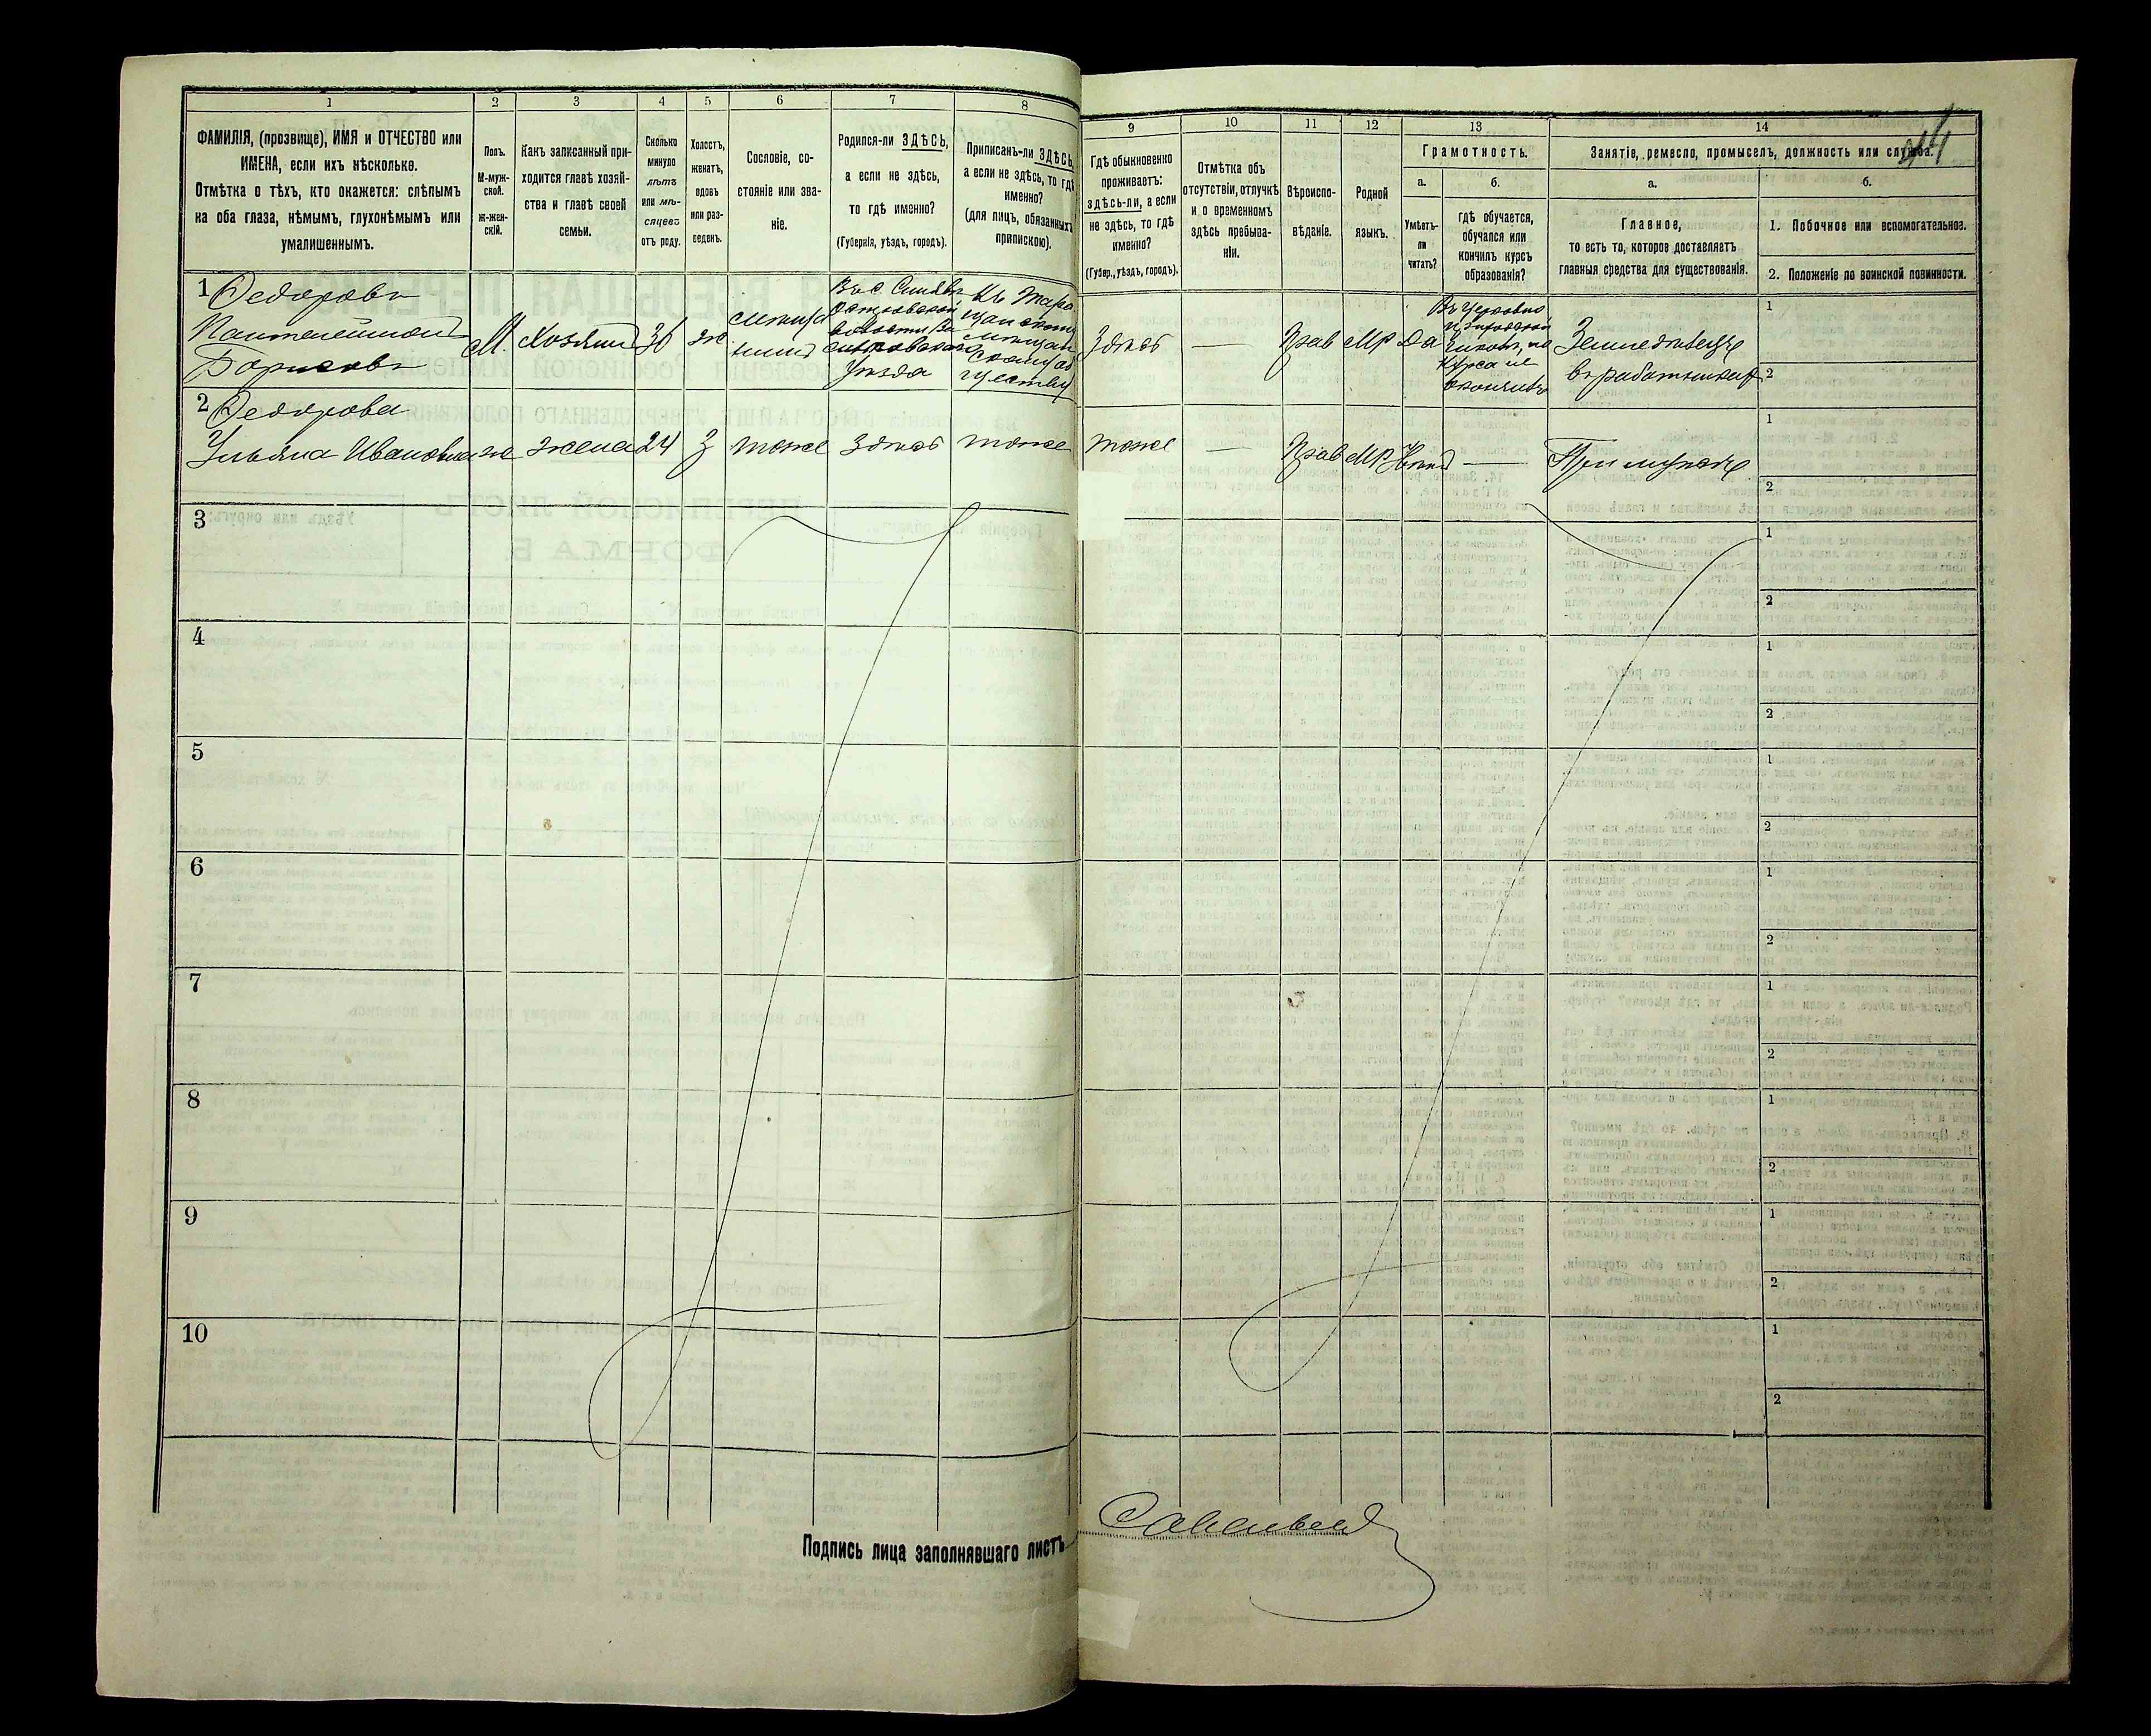 1
2
3
4
5
6
7
8
ФАМИЛІЯ, (прозвище), ИМЯ и ОТЧЕСТВО или
ИМЕНА, если ихъ нѣсколько.
Отмѣтка о тѣхъ, кто окажется: слѣпымъ
на оба глаза, нѣмымъ, глухонѣмымъ или
умалишеннымъ.
Полъ.
М-муж-
ской.
ж-жен-
скій.
Какъ записанный при-
ходится главѣ хозяй-
ства и главѣ своей
семьи.
Сколько
минуло
лѣтъ
или мѣ-
сяцевъ
отъ роду.
Холостъ,
женатъ,
вдовъ
или раз-
веденъ.
Сословіе, со-
стояніе или зва-
ніе.
Родился-ли ЗДѢСЬ,
а если не здѣсь,
то гдѣ именно?
(Губернія, уѣздъ, городъ).
Приписанъ-ли ЗДѢСЬ,
а если не здѣсь, то гдѣ
именно?
(для лицъ, обязанныхъ
припискою).
9
10
11
12
13
14
Гдѣ обыкновенно
проживаетъ:
здѣсь-ли, а если
не здѣсь, то гдѣ
именно?
(Губер., уѣздъ, городъ).
Отмѣтка объ
отсутствіи, отлучкѣ
и о временномъ
здѣсь пребыва-
ніи.
Вѣроиспо-
вѣданіе.
Родной
языкъ.
Грамотность.
а.
б.
Умѣетъ-
ли
читать?
гдѣ обучается,
обучался или
кончилъ курсъ
образованія?
Занятіе, ремесло, промыселъ, должность или служба.
а.
б.
Главное,
то есть то, которое доставляетъ
главныя средства для существованія.
1. Побочное или вспомогательное.
2. Положеніе по воинской повинности.
1 Федоровъ
Пантелеймонъ
Борисовъ
М.
Хозяинъ
36
ж
мѣща
нинъ
волости Ва
сильковскаго
уѣзда
Къ Тара
щанскому
мѣщан
скому об
ществу
Здѣсь
—
Прав
МР
Да
Въ Церковно
курса не
окончилъ
Земледѣлецъ
въ работникахъ
1
2
2 Федорова
Ульяна Ивановна
ж
жена
24
З
тоже
Здѣсь
тоже
тоже
—
Прав
МР
Нѣтъ
—
При мужѣ
1
2
3
1
2
4
1
2
5
1
2
6
1
2
7
1
2
8
1
2
9
1
2
10
1
2
Подпись лица заполнявшаго листъ